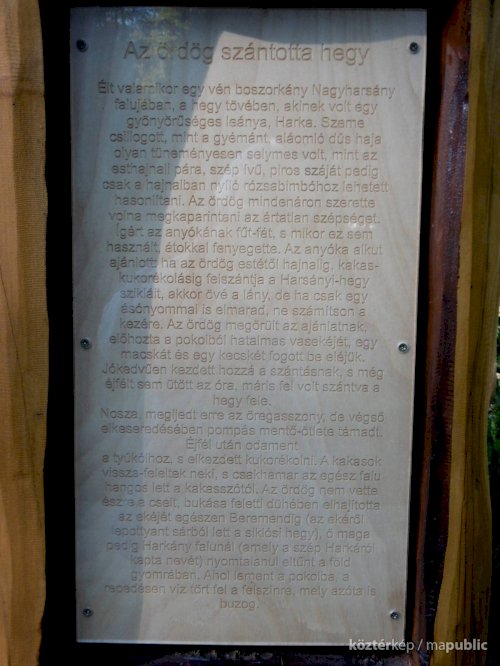 Az ördög szántotta hegy
Élt valamikor egy vén boszorkány Nagyharsány
falujában, a hegy tövében, akinek volt egy
gyönyörűséges leánya, Harka. Szeme
csillogott, mint a gyémánt, aláomló dús haja
olyan tüneményesen selymes volt, mint az
esthajnali pára, szép ívű, piros száját pedig
csak a hajnalban nyíló rózsabimbóhoz lehetett
hasonlítani. Az ördög mindenáron szerette
volna megkaparintani az ártatlan szépséget.
Ígért az anyókának fűt-fát, s mikor ez sem
használt, átokkal fenyegette. Az anyóka alkut
ajánlott: ha az ördög estétől hajnalig, kakas-
kukorékolásig felszántja a Harsányi-hegy
szikláit, akkor övé a lány, de ha csak egy
ásónyommal is elmarad, ne számítson a
kezére. Az ördög megörült az ajánlatnak,
előhozta a pokolból hatalmas vasekéjét, egy
macskát és egy kecskét fogott be eléjük.
Jókedvűen kezdett hozzá a szántásnak, s még
éjfélt sem ütött az óra, máris fel volt szántva a
hegy fele.
Nosza, megijedt erre az öregasszony, de végső
elkeseredésében pompás mentő-ötlete támadt.
Éjfél után odament
a tyúkólhoz, s elkezdett kukorékolni. A kakasok
vissza-feleltek neki, s csakhamar az egész falu
hangos lett a kakasszótól. Az ördög nem vette
észre a cselt, bukása feletti dühében elhajította
az ekéjét egészen Beremendig (az ekéről
lepottyant sárból lett a siklósi hegy), ő maga
pedig Harkány falunál (amely a szép Harkáról
kapta nevét) nyomtalanul eltűnt a föld
gyomrában. Ahol lement a pokolba, a
repedésen víz tört fel a felszínre, mely azóta is
buzog.
köztérkép / mapublic